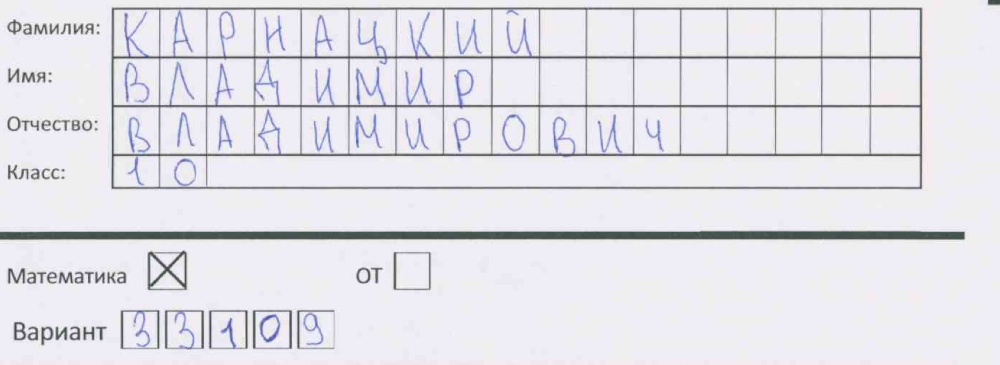 Фамилия: КАРНАЦКИЙ
Имя: ВЛАДИМИР
Отчество: ВЛАДИМИРОВИЧ
Класс: 10
Математика ☒ ОТ ☐
Вариант 33109